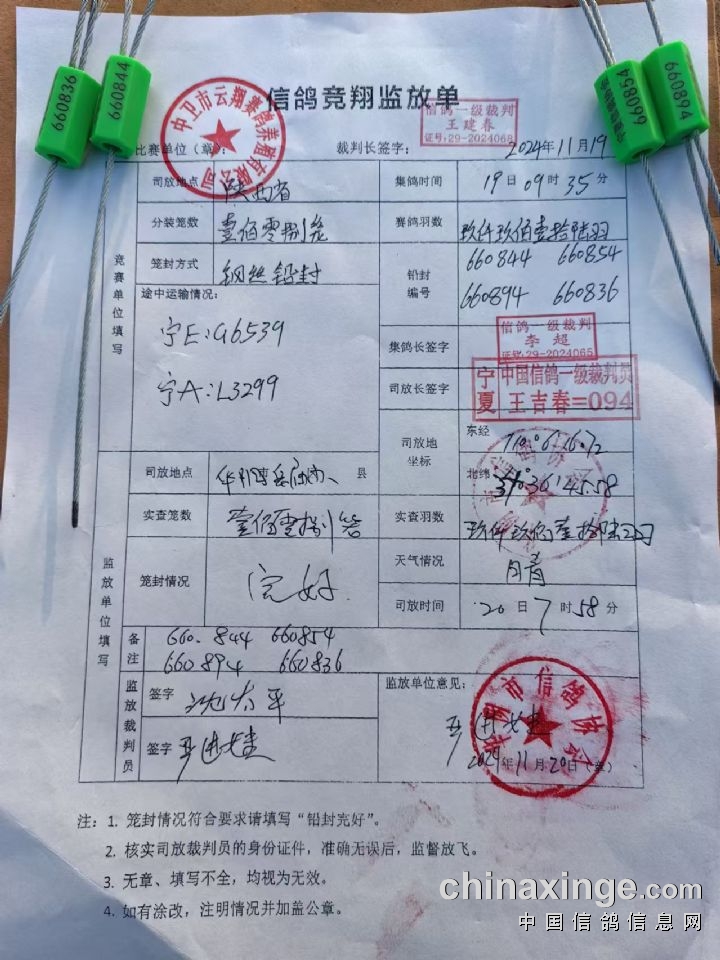 660836
660844
660854
660894
信鸽竞翔监放单
中卫市云翔赛鸽养殖有限公司
信鸽一级裁判
王建春
证号:29-2024068
比赛单位（章）：
裁判长签字：
2024年11月19
竞赛单位填写
司放地点 陕西省
集鸽时间 19日09时35分
分装笼数 壹佰零捌笼
赛鸽羽数 玖仟玖佰壹拾陆羽
笼封方式 钢丝铅封
铅封编号 660844 660854
660894 660836
途中运输情况：
宁E:G6539
宁A:L3299
集鸽长签字
信鸽一级裁判
李超
证号:29-2024065
司放长签字
宁夏 中国信鸽一级裁判员
王吉春=094
司放地坐标
东经
北纬
监放单位填写
司放地点 县
实查笼数
实查羽数 玖仟玖佰壹拾陆羽
笼封情况 完好
天气情况 晴
司放时间 20日7时58分
备注 660.844 660854
660894 660836
监放裁判员
签字 沈太平
签字
监放单位意见：
市信鸽协会
2024年11月20日（章）
注：1. 笼封情况符合要求请填写“铅封完好”。
2. 核实司放裁判员的身份证件，准确无误后，监督放飞。
3. 无章、填写不全，均视为无效。
4. 如有涂改，注明情况并加盖公章。
chinaxinge.com
中国信鸽信息网